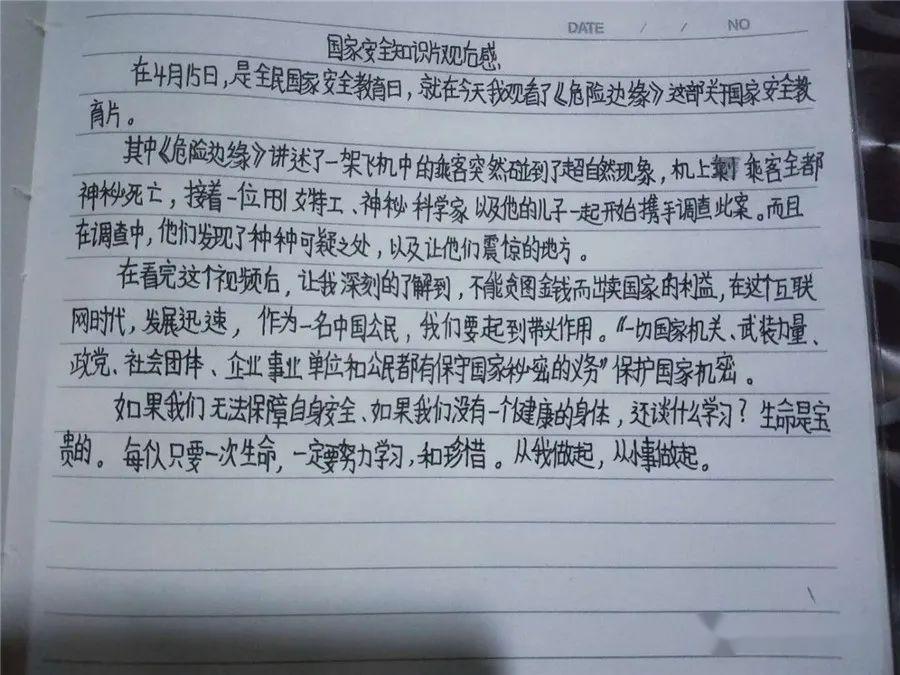 DATE / / NO
国家安全知识片观后感、
在4月15日，是全民国家安全教育日，就在今天我观看了《危险边缘》这部关于国家安全教
育片。
其中《危险边缘》讲述了一架飞机中的乘客突然碰到了超自然现象，机上 乘客全都
神秘死亡，接着一位FBI女特工、神秘科学家以及他的儿子一起开始携手调查此案。而且
在调查中，他们发现了种种可疑之处，以及让他们震惊的地方。
在看完这个视频后，让我深刻的了解到，不能贪图金钱而出卖国家的利益，在这个互联
网时代，发展迅速，作为一名中国公民，我们要起到带头作用。“一切国家机关、武装力量、
政党、社会团体、企业事业单位和公民都有保守国家秘密的义务”保护国家机密。
如果我们无法保障自身安全、如果我们没有一个健康的身体，还谈什么学习？生命是宝
贵的。每 只要一次生命，一定要努力学习，和珍惜。从我做起，从小事做起。